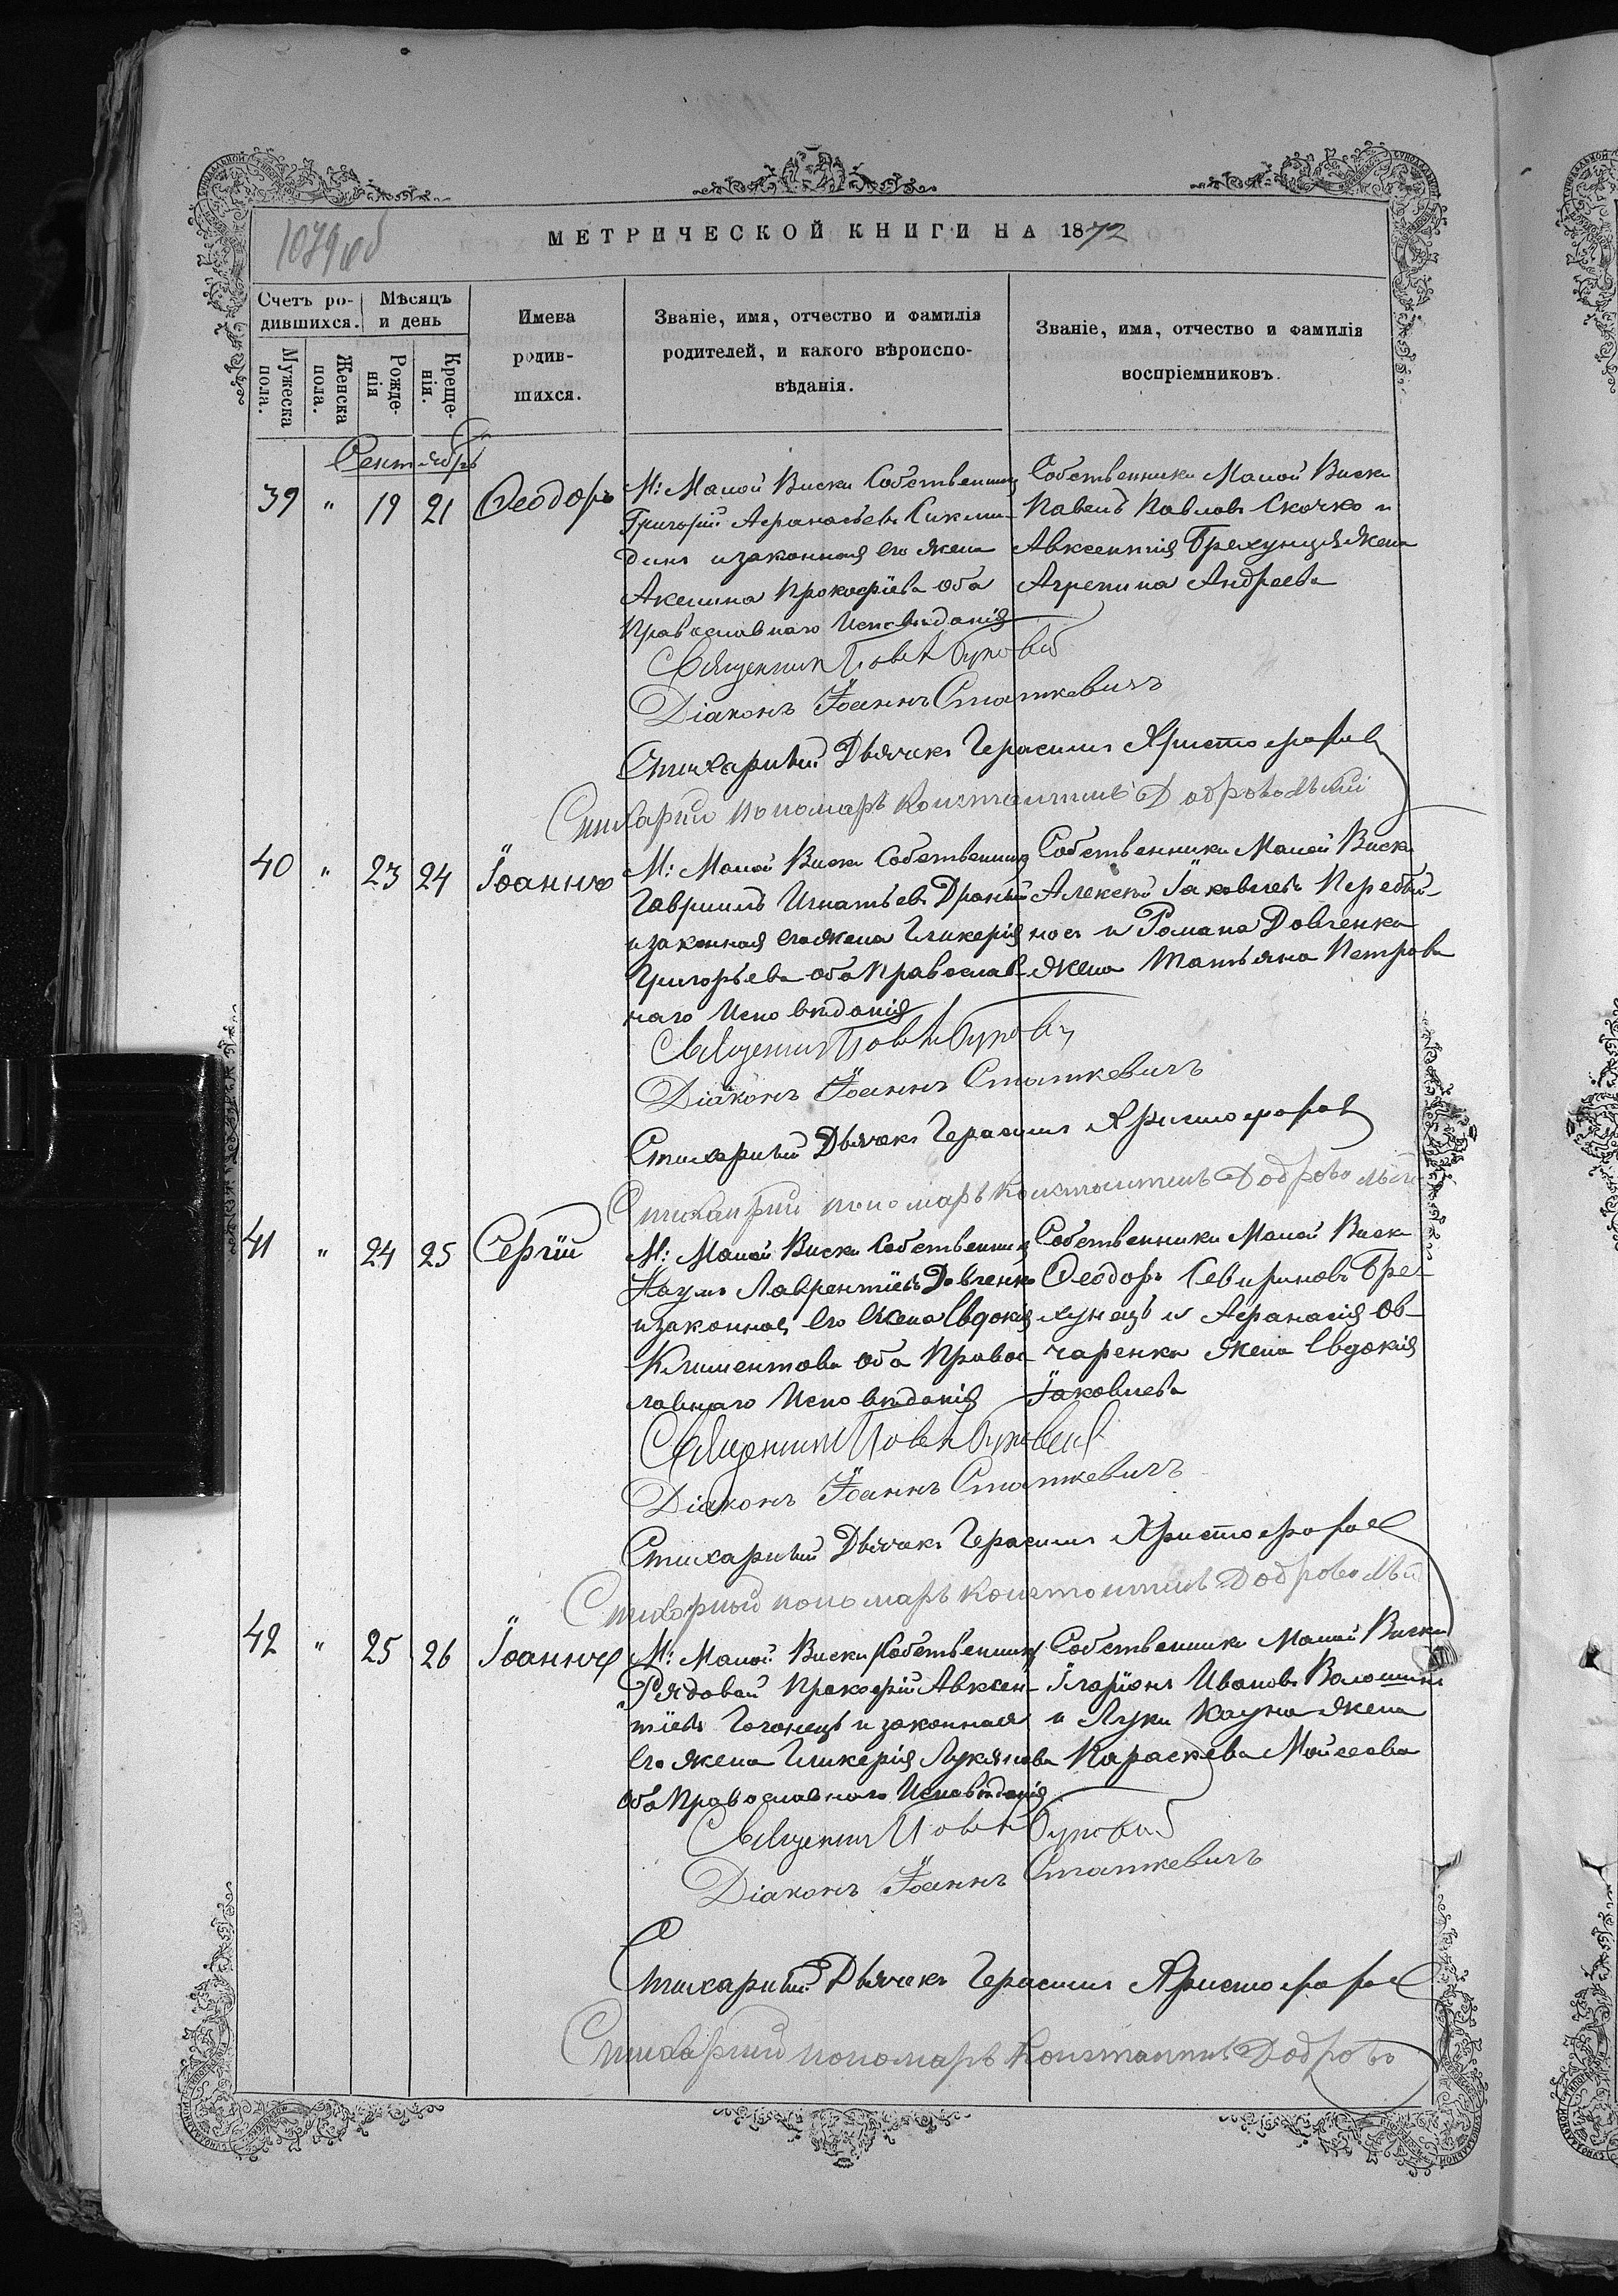 1079 об
МЕТРИЧЕСКОЙ КНИГИ НА 1872
Счетъ ро-
дившихся.
Мѣсяцъ
и день
Мужеска
пола.
Женска
пола.
Рожде-
нія
Креще-
нія.
Имена
родив-
шихся.
Званіе, имя, отчество и фамилія
родителей, и какого вѣроиспо-
вѣданія.
Званіе, имя, отчество и фамилія
воспріемниковъ.
Сентябрь
39 " 19 21 Ѳеодоръ
М: Малой Виски Собственникъ
Григорій Афанасьевъ
и законная его жена
Акилина Прокофіева оба
Православнаго Исповѣданія
Собственники Малой Виски
Павелъ Павловъ Скочко и
Авксентія Брехунца жена
Агрепина Андреева
Священникъ
Діаконъ Іоаннъ Статкевичъ
Стихарный Дьячекъ Герасимъ Христофоров
Стихарный пономарь Константинъ Добровольскій
40 " 23 24 Іоаннъ
М: Малой Виски Собственникъ
Гавриилъ Игнатьевъ Драный
и законная его жена Гликерія
Григорьева оба Православ-
наго Исповѣданія
Собственники Малой Виски
Алексѣй Іаковлевъ Перебый-
носъ и Романа Довгенка
жена Татьяна Петрова
Священникъ
Діаконъ Іоаннъ Статкевичъ
Стихарный Дьячекъ Герасимъ Христофоров
пономарь Константинъ
41 " 24 25 Сергій
М: Малой Виски Собственникъ
Наумъ Лаврентіевъ Довгенко
и законная его жена Евдокія
Климентова оба Правос-
лавнаго Исповѣданія
Собственники Малой Виски
Ѳеодоръ Севириновъ Бре-
хунецъ и Афанасія Ов-
чаренка жена Евдокія
Іаковлева
Священникъ
Діаконъ Іоаннъ Статкевичъ
Стихарный Дьячекъ Герасимъ Христофоров
Стихарный пономарь Константинъ
42 " 25 26 Іоаннъ
М: Малой Виски Собственникъ
Рядовой Прокофій Авксен-
тіевъ Гоганецъ и законная
его жена Гликерія Лукянова
оба Православнаго Исповѣданія
Собственники Малой Виски
Іларіонъ Ивановъ Волошинъ
и Луки Кауна жена
Параскева Мойсеева
Священникъ
Діаконъ Іоаннъ Статкевичъ
Стихарный Дьячекъ Герасимъ Христофоров
Стихарный пономарь Константинъ Добров